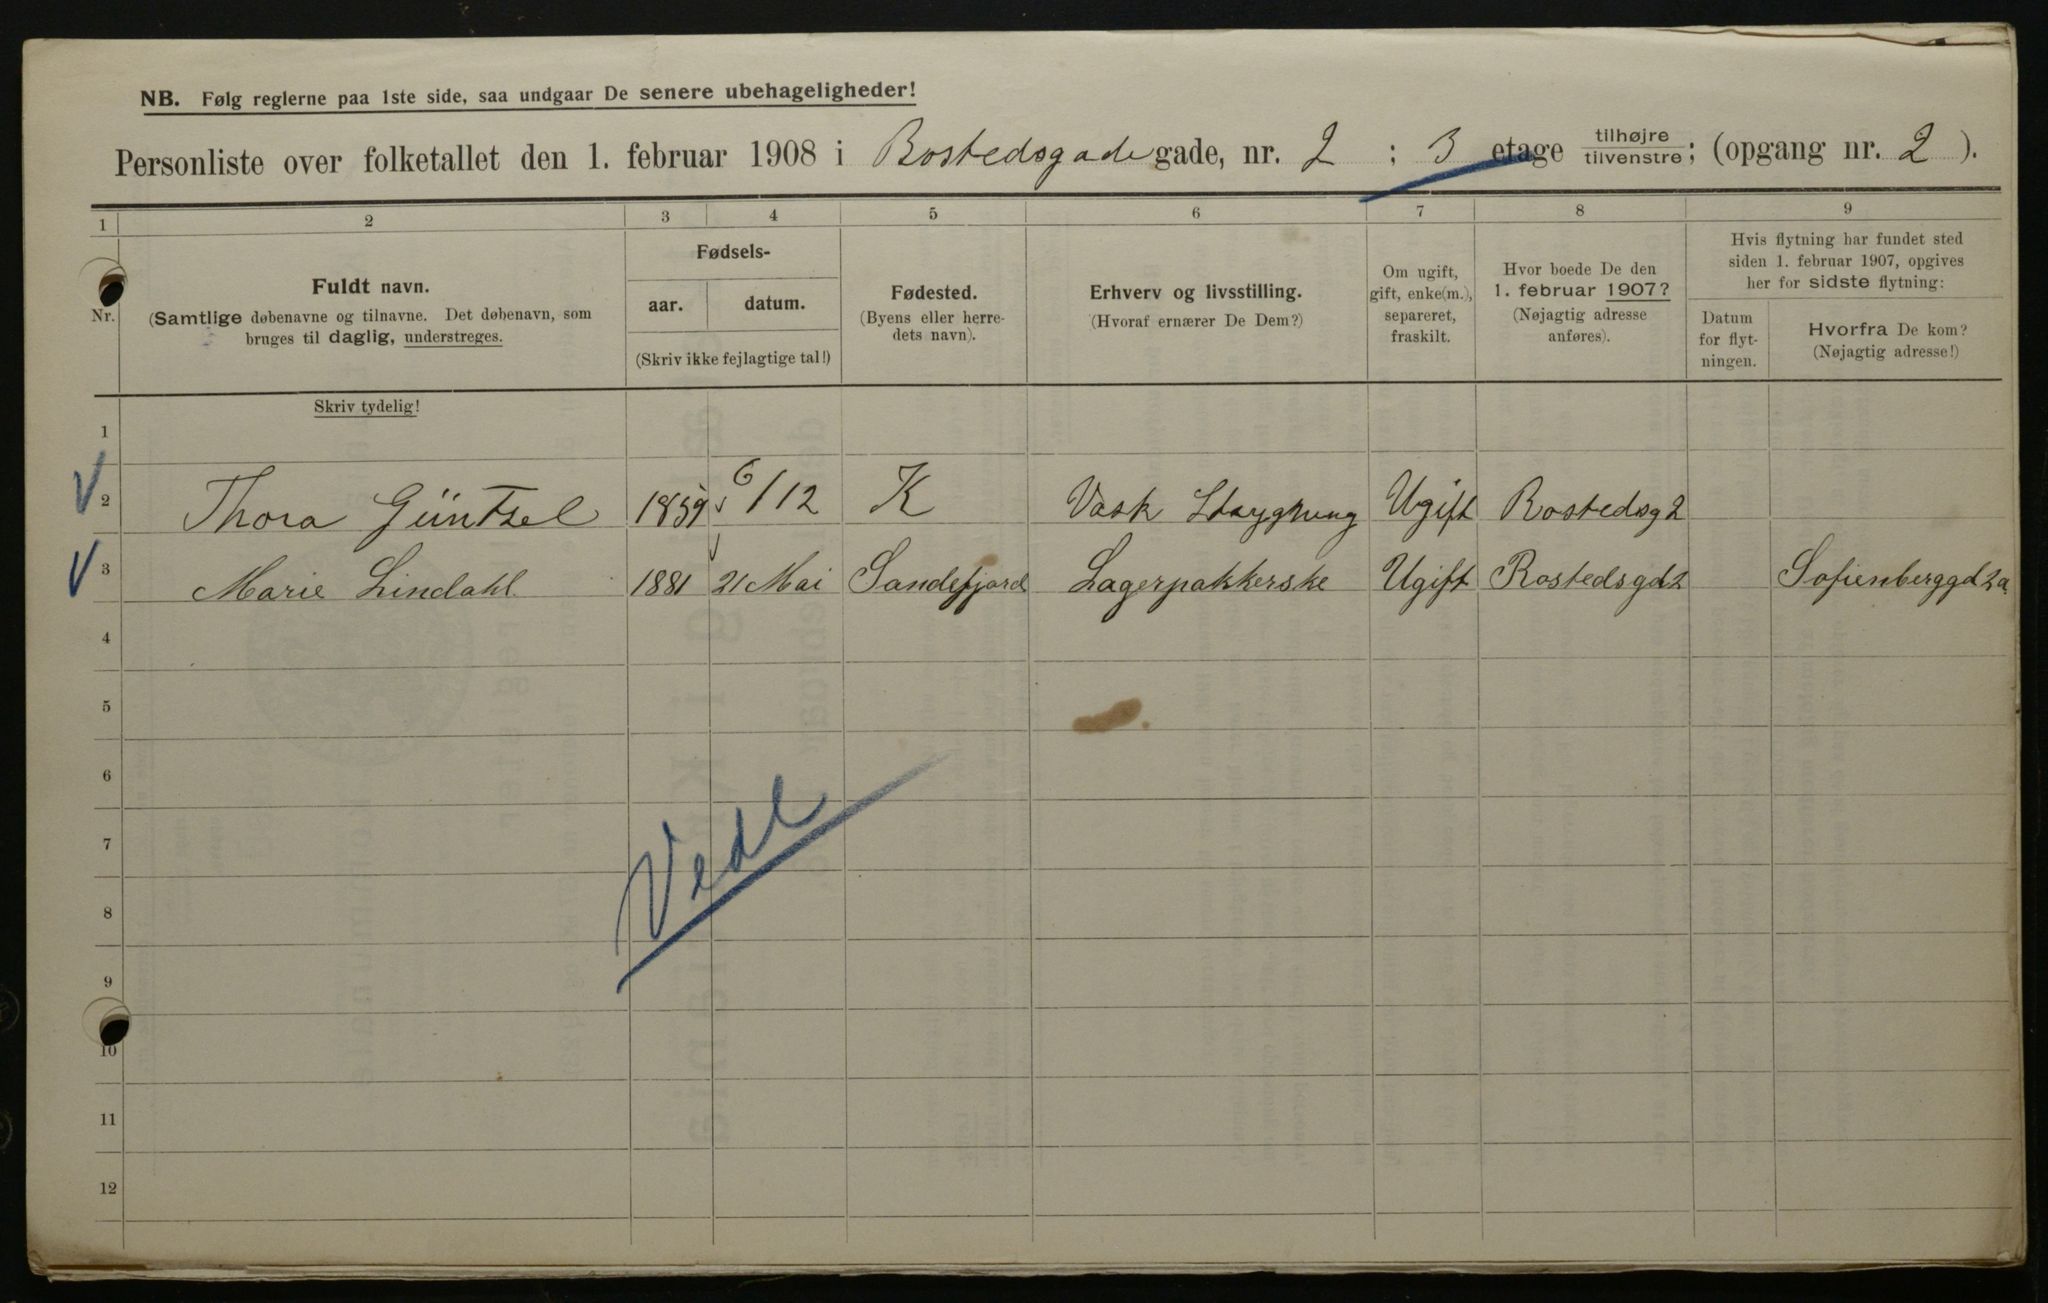 NB. Følg reglerne paa 1ste side, saa undgaar De senere ubehageligheder!
Personliste over folketallet den 1. februar 1908 i Rostedsgade gade, nr. 2 ; 3 etage tilhøjre / tilvenstre ; (opgang nr. 2 ).
1 2 3 4 5 6 7 8 9
Nr.
Fuldt navn.
(Samtlige døbenavne og tilnavne. Det døbenavn, som
bruges til daglig, understreges.
Skriv tydelig!
Fødsels-
aar. datum.
(Skriv ikke fejlagtige tal!)
Fødested.
(Byens eller herre-
dets navn).
Erhverv og livsstilling.
(Hvoraf ernærer De Dem?)
Om ugift,
gift, enke(m.),
separeret,
fraskilt.
Hvor boede De den
1. februar 1907?
(Nøjagtig adresse
anføres).
Hvis flytning har fundet sted
siden 1. februar 1907, opgives
her for sidste flytning:
Datum
for flyt-
ningen.
Hvorfra De kom?
(Nøjagtig adresse!)
1
2 Thora Güntzel 1859 6/12 K Vask Ugift Rostedsg 2
3 Marie Lindahl 1881 21 Mai Sandefjord Lagerpakkerske Ugift Rostedsgd 2 Sofienberggd 2a
4
5
6
7
8
9
10
11
12
Vedl